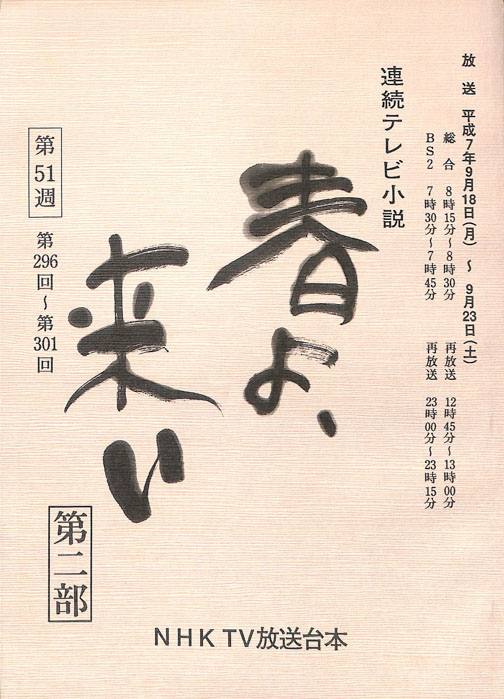 放送 平成7年9月18日(月)～9月23日(土)
総合 8時15分～8時30分 再放送 12時45分～13時00分
BS2 7時30分～7時45分 再放送 23時00分～23時15分
連続テレビ小説
春よ、
来い
第二部
第51週
第296回～第301回
NHK TV放送台本